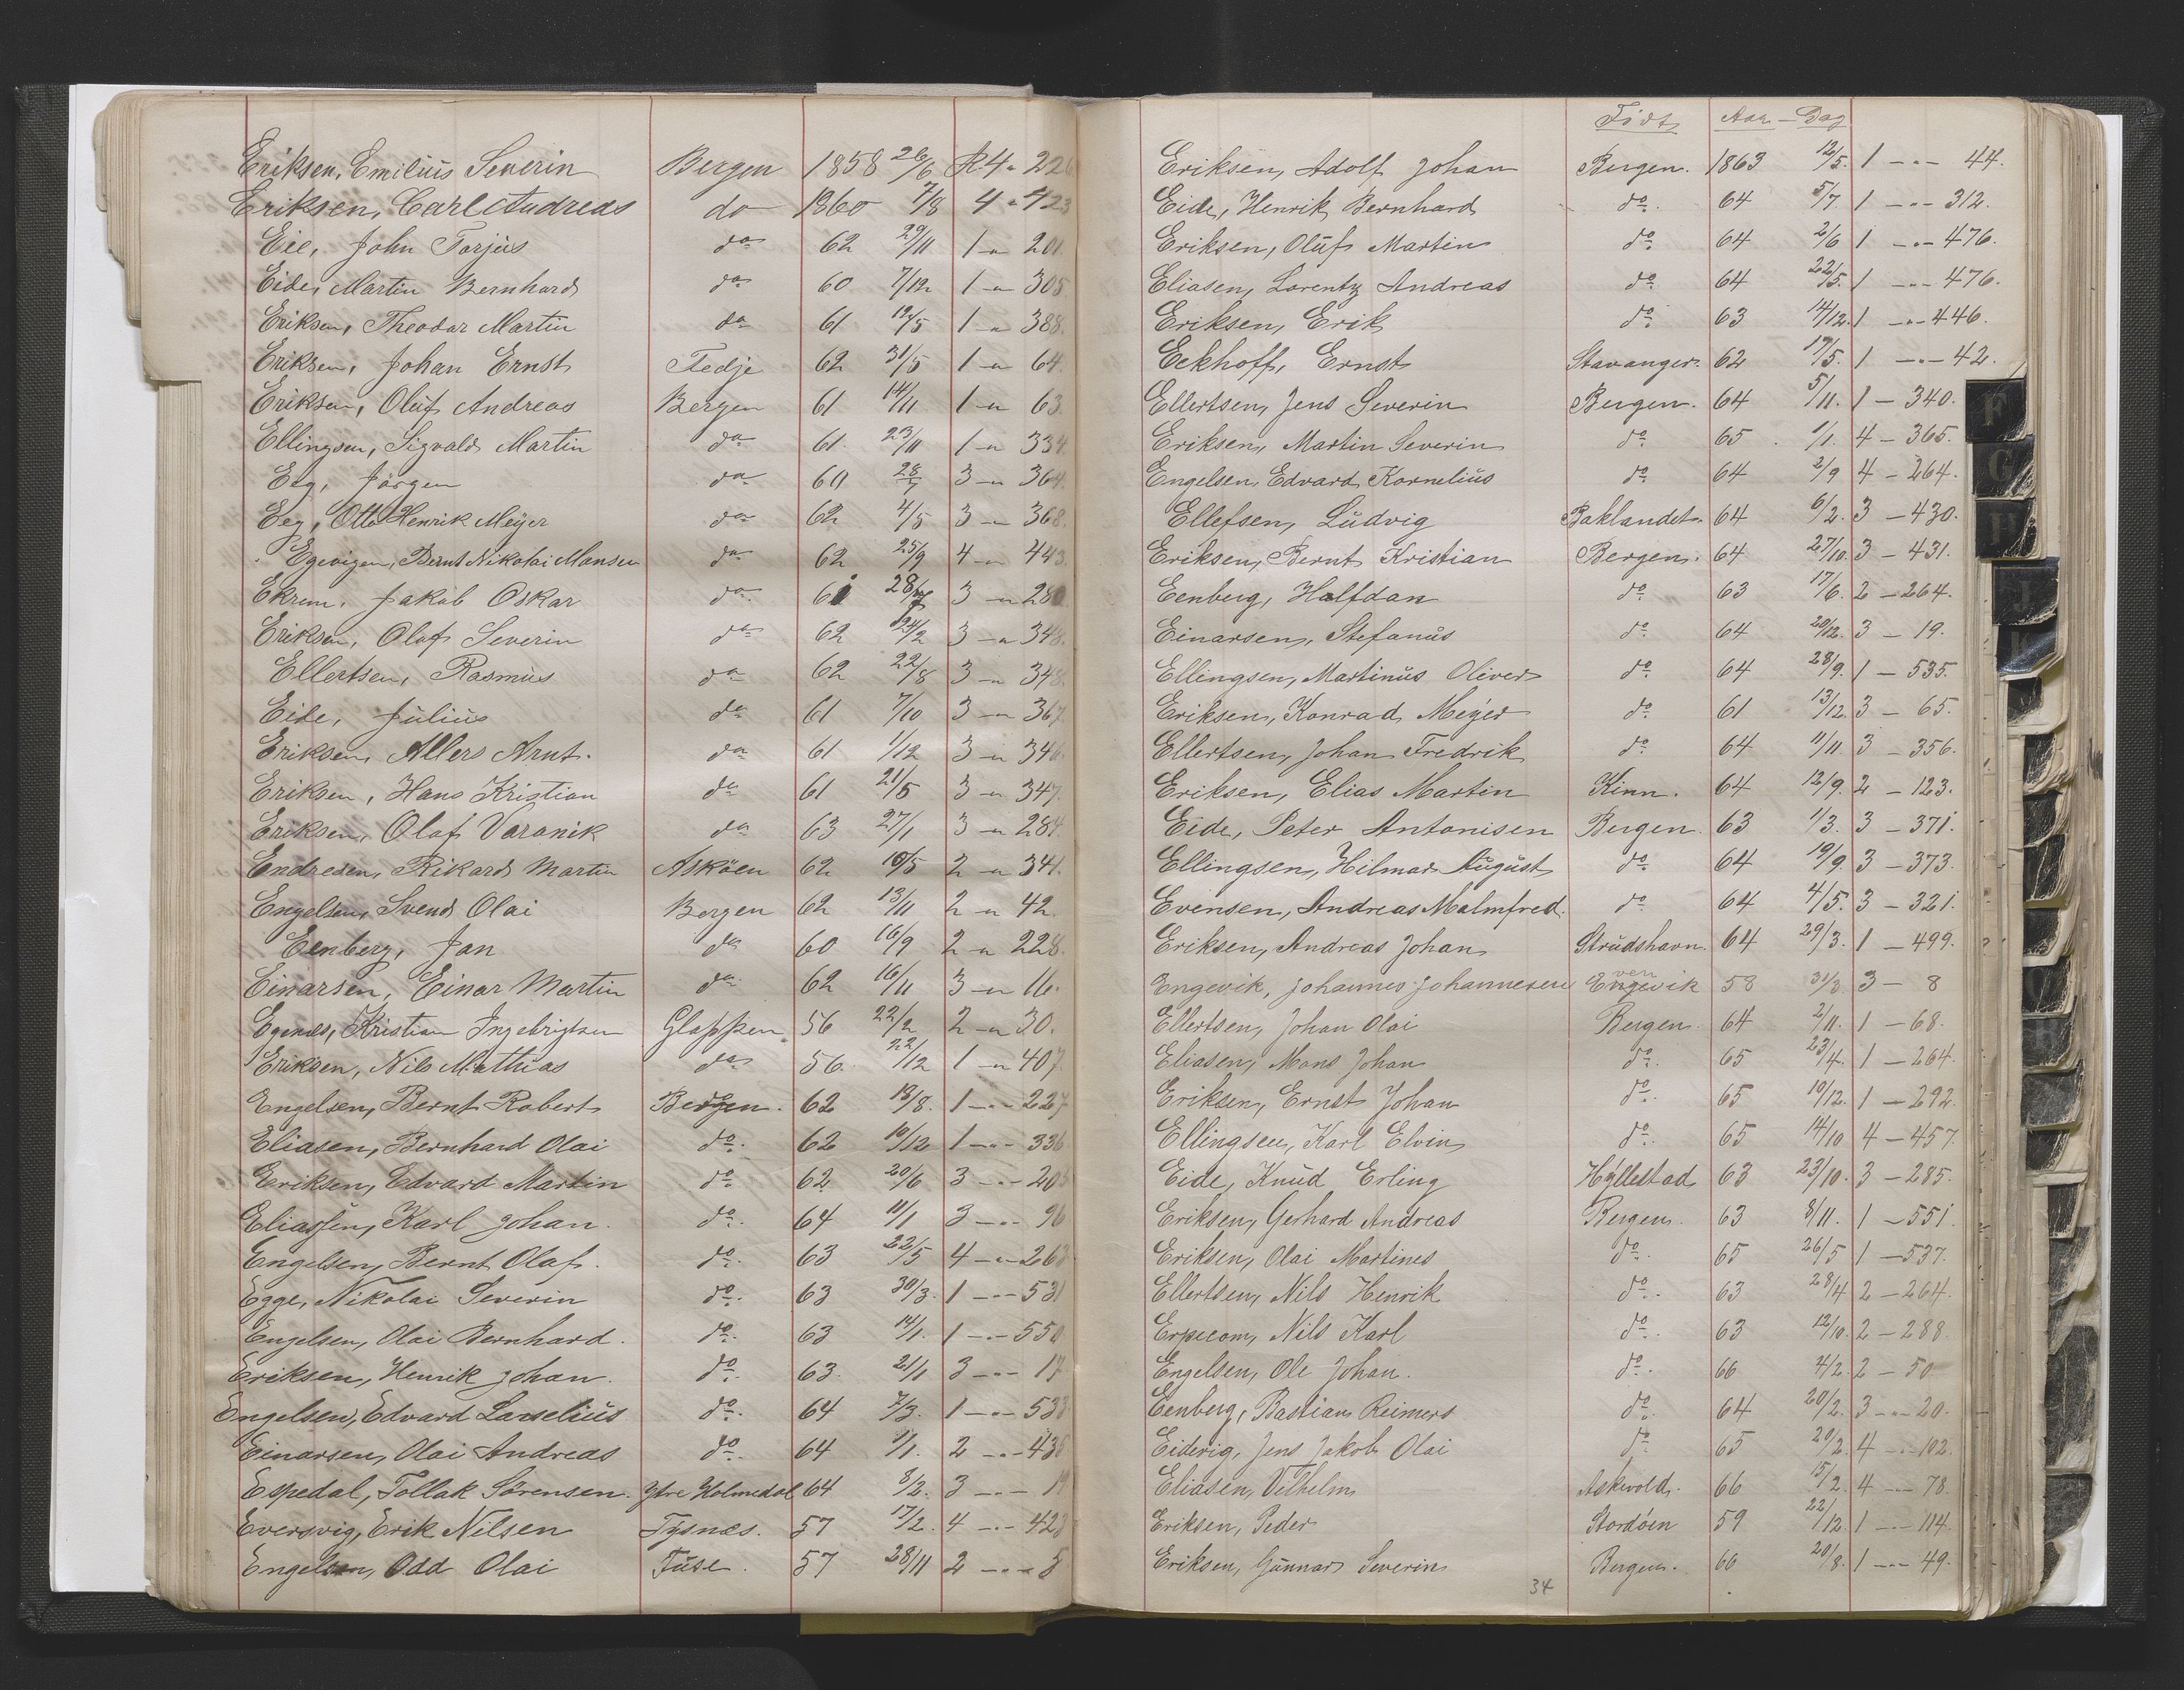 Eriksen, Emilius Severin Bergen 1858 26/6 R 4 " 226
Eriksen, Carl Andreas do 1860 7/8 4 " 423
Eie, John Torjus do 62 29/11 1 " 201
Eide, Martin Bernhard do 60 7/12 1 " 305
Eriksen, Theodor Martin do 61 12/5 1 " 388.
Eriksen, Johan Ernst Fedje 62 31/5 1 " 64.
Eriksen, Oluf Andreas Bergen 61 14/11 1 " 63.
Ellingsen, Sigvald Martin do 61. 23/11 1 " 334.
Eeg, Jörgen do 60 28/7 3 " 364.
Eeg, Otto Henrik Meyer do 62 4/5 3 " 368.
Egevigen, Bernt Nikolai Monsen do 62 25/9 4 " 443.
Ekren, Jakob Oskar do 61 3 " 28
Eriksen, Olaf Severin do 62 24/2 3 " 348.
Ellertsen, Rasmus do 62 22/8 3 " 348.
Eide, Julius do 61 7/10 3 " 367.
Eriksen, Allers Arnt. do 61 1/12 3 " 346.
Eriksen, Hans Kristian do 61 21/5 3 " 347.
Eriksen, Olaf Varanik do 63 27/1 3 " 284.
Endresen, Rikard Martin Asköen 62 10/5 2 " 341.
Engelsen, Svend Olai Bergen 62 13/11 2 " 42.
Eenberg, Jan do 60 16/9 2 " 228.
Einarsen, Einar Martin do 62 16/11 3 " 16.
Egenes, Kristian Ingebrigtsen Gloppen 56 22/2 2 " 30.
Eriksen, Nils Mathias do 56. 22/12 1 " 407.
Engelsen, Bernt Robert Bergen. 62 18/8. 1 " 227
Eliasen, Bernhard Olai do. 62 10/12 1 " 336
Eriksen, Edvard Martin do. 62 20/6 3 " 205
Eliassen, Karl Johan. do. 64 11/1 3 " 96
Engelsen, Bernt Olaf. do. 63 22/5 4 " 263
Egge, Nikolai Severin do. 63 30/3. 1 " 531
Engelsen, Olai Bernhard. do. 63 14/1. 1 " 550
Eriksen, Henrik Johan. do. 63. 21/1 3 " 17
Engelsen, Edvard Larselius do. 64 7/3. 1 " 533
Einarsen, Olai Andreas do. 64 1/1. 2 " 438
Espedal, Tollak Sörensen. Ytre Holmedal 64 8/2. 3 " 19
Eversvig, Erik Nilsen Tysnæs. 57 17/2. 4 " 423
Engelsen, Odd Olai Fuse. 57 28/11 2 " 5
Födt Aar - Dag
Eriksen, Adolf Johan Bergen. 1863 12/5. 1 " 44.
Eide, Henrik Bernhard do. 64 5/7 1 " 312.
Eriksen, Oluf Martin do. 64 2/6 1 " 476.
Eliasen, Lorentz Andreas do. 64 22/5. 1 " 476.
Eriksen, Erik do. 63 14/12. 1 " 446.
Eckhoff, Ernst Stavanger. 62 19/5. 1 " 42.
Ellertsen, Jens Severin Bergen. 64 5/11. 1 - 340.
Eriksen, Martin Severin do. 65 1/1. 4 - 365.
Engelsen, Edvard Kornelius do. 64 2/9 4 - 264.
Ellefsen, Ludvig Baklandet. 64 6/2. 3 - 430.
Eriksen, Bernt Kristian Bergen. 64 27/10. 3 - 431.
Eenberg, Halfdan do. 63 17/6. 2 - 264.
Einarsen, Stefanus do. 64 20/12. 3 - 19.
Ellingsen, Martinus Oliver do. 64 28/9. 1 - 535.
Eriksen, Konrad Meyer do. 61 13/12. 3 - 65.
Ellertsen, Johan Fredrik do. 64 11/11 3 - 356.
Eriksen, Elias Martin Kinn. 64 12/9. 2 - 123.
Eide, Peter Antonisen Bergen. 63 1/3. 3 - 371.
Ellingsen, Hilmar August do. 64 19/9. 3 - 373.
Evensen, Andreas Malmfred. do. 64 4/5. 3 - 321.
Eriksen, Andreas Johan Strudshavn. 64 29/3. 1 - 499.
Engevik, Johannes Johannesen Engevik 58 31/8 3 - 8
Ellertsen, Johan Olai Bergen. 64 2/11. 1 - 68.
Eliasen, Mons Johan do. 65 23/4. 1 - 264.
Eriksen, Ernst Johan do. 65 19/12. 1 - 292.
Ellingsen, Karl Elvin do. 65 14/10 4 - 457.
Eide, Knud Erling Hyllestad 63 23/10. 3 - 285.
Eriksen, Gerhard Andreas Bergen. 63 8/11. 1 - 551.
Eriksen, Olai Martines do. 65 26/5 1 - 537.
Ellertsen, Nils Henrik do. 63 28/4 2 - 264.
Erpecom, Nils Karl do. 63 12/10. 2 - 288.
Engelsen, Ole Johan. do. 66 4/2. 2 - 50
Eenberg, Bastian Reimers do. 64 20/2. 3 " 20.
Eidevig, Jens Jakob Olai do 65 20/2. 4 " 102.
Eliasen, Vilhelm Askvold. 66 15/2. 4 " 78.
Eriksen, Peder Stordöen 59 22/12. 1 " 114.
Eriksen, Gunnar Severin Bergen. 66 20/8. 1 " 49.
34
F
G
H
J
K